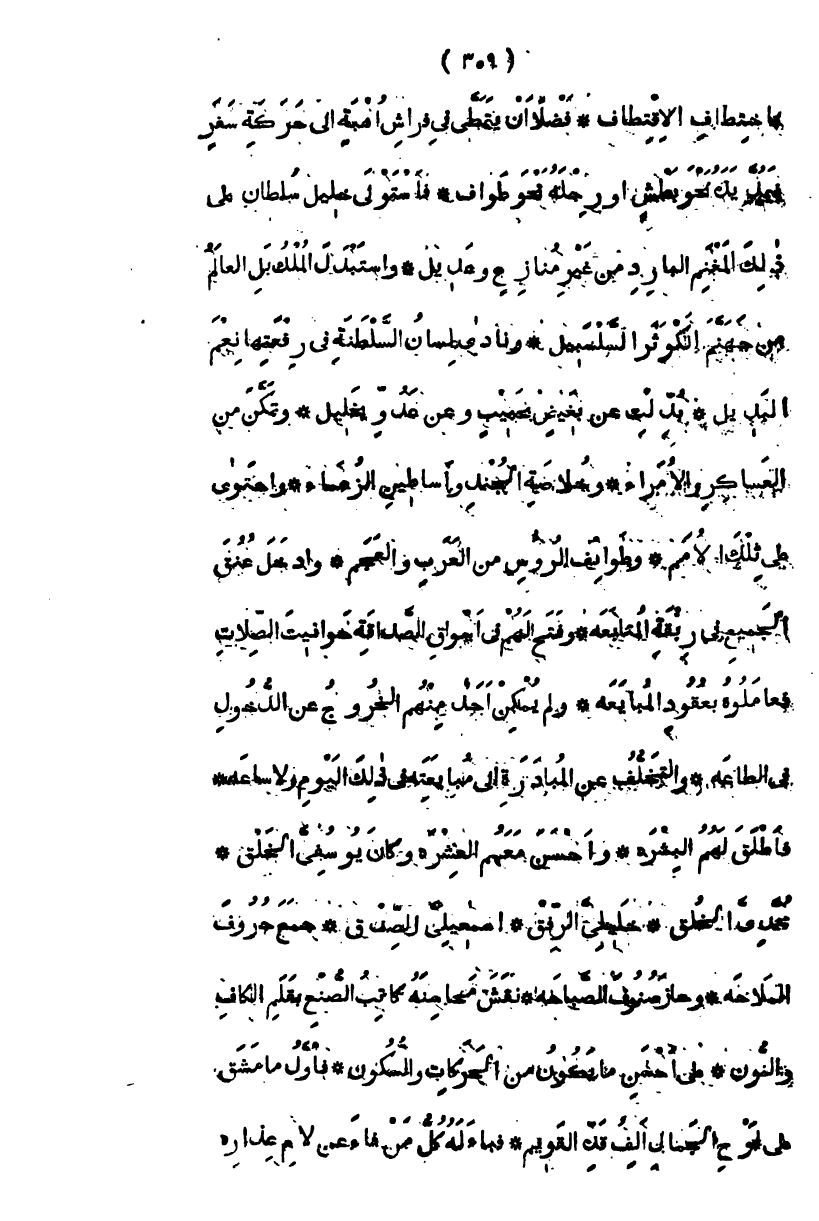 ( ٣٠٩ )
باختطاف الاقتطاف * فَضْلًا أَنْ يَتَمَطَّى فى فراشِ أُهْبَةٍ الى حَرَكَةِ سَفَرٍ
فيمدّ يدًا نَحْوَ بَطْشٍ او رِجْلَهُ نَحْوَ طَواف * فاسْتَوْلَى خليل سُلطان على
ذٰلِكَ المَغْنَمِ البارِدِ مِن غَيْرِ مُنازِعٍ وعَدِيل * واسْتَبْدَلَ المُلْكُ بَلِ العالَمُ
مِن جَهَنَّمَ الكَوْثَرَ السَّلْسَبيل * ونادى لِسانُ السَّلْطَنَةِ فى رِقْعَتِها نِعْمَ
البَدِيل * بُدِّلْتُ عن بَغِيضٍ بحَبِيبٍ وعن عَدُوٍّ بخَلِيل * وتَمَكَّنَ من
العَساكرِ والأُمَراء * وخُلاصَةِ الجُنْدِ وأَساطينِ الزُّعَماء * واحتَوى
على تِلْكَ الأُمَم * وطَوائِفِ الرُّؤُسِ من العَرَبِ والعَجَم * وادخَلَ عُنُقَ
الجَميعِ فى رِبْقَةِ المُتابَعَه * وفَتَحَ لَهُمْ فى أَسْواقِ الصَّداقَةِ حَوانيتَ الصِّلاتِ
فعامَلُوهُ بعُقُودِ المُبايَعَه * ولم يُمْكِنْ أَحَدٌ مِنْهُم الخُروجُ عن الدُّخُولِ
فى الطاعَه * والتَخَلُّف عن المُبادَرَةِ الى مُبايَعَتِه فى ذٰلِكَ اليَوْمِ ولا ساعَه *
فأَطْلَقَ لَهُمُ البِشْرَه * واَحْسَنَ مَعَهم العِشْرَه وكانَ يُوسُفِىَّ الخَلْق *
مُحَمَّدِىَّ الخُلق * خَلِيلِىَّ الرِّفْق * اسمٰعِيلِىَّ الصِّدْق * جمَعَ حُرُوفَ
المَلاحَه * وحازَ صُنُوفَ الصَّباحَه * نَقَشَ مَحاسِنَهُ كاتِبُ الصُّنْعِ بقَلَمِ الكافِ
والنُّون * على أَحْسَنِ ما يَكُونُ من الحَرَكاتِ والسُّكُون * فأَوَّلُ ما مَشَقَ
على لَوْحِ الجَمالِ أَلِفُ قَدِّهِ القَوِيم * فجاءَ لَهُ كُلُّ مَنْ عن لامِ عِذارِه